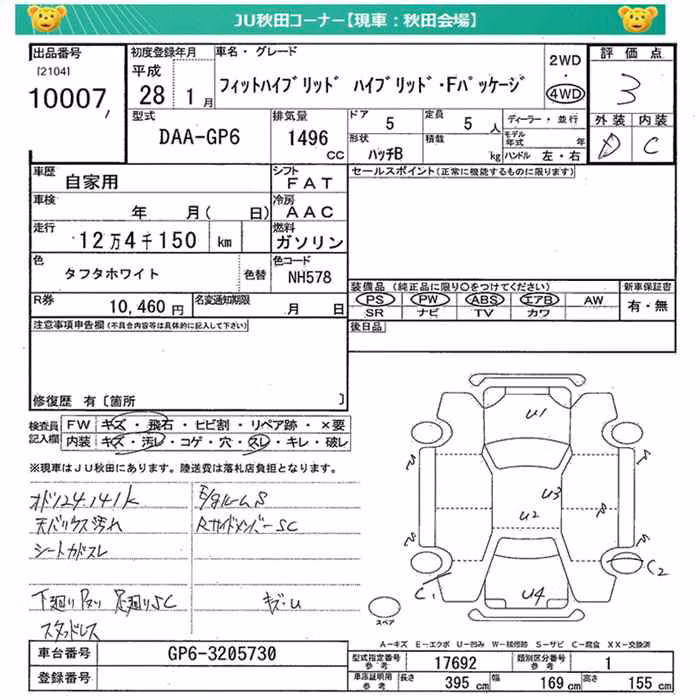 JU秋田コーナー【現車：秋田会場】
出品番号
[2104]
10007
初度登録年月
平成
28年 1月
車名・グレード
フィットハイブリッド ハイブリッド・Fパッケージ
2WD
・
4WD
評価点
3
型式
DAA-GP6
排気量
1496
CC
ドア 5
定員 5 人
ディーラー・並行
形状
ハッチB
積載
kg
モデル年式 年
ハンドル 左・右
外装 内装
D C
車歴
自家用
シフト
FAT
セールスポイント(正常に機能するものに限ります)
車検
年 月( 日)
冷房
AAC
走行
12万4千150 km
燃料
ガソリン
色
タフタホワイト
色替
色コード
NH578
装備品 (純正品に限り○をつけてください)
PS PW ABS エアB AW
SR ナビ TV カワ
新車保証書
有・無
R券
10,460円
名変通知期限
月 日
後日品
注意事項申告欄(不具合内容等は具体的に記入して下さい)
修復歴 有〔箇所 〕
検査員
記入欄
FW キズ・飛石・ヒビ割・リペア跡・×要
内装 キズ・汚レ・コゲ・穴・スレ・キレ・破レ
※現車はJU秋田にあります。陸送費は落札店負担となります。
オドメ124,141k
天バックス汚れ
シートカドスレ
RサイドメンバーSC
下廻り 足廻りSC
キズ・U
スタッドレス
U1
U3
U2
U4
C1
C2
スペア
A－キズ E－エクボ U－凹み W－補修跡 S－サビ C－腐食 XX－交換済
車台番号
GP6-3205730
型式指定番号
参考
17692
類別区分番号
参考
1
登録番号
車庫証明用
参考
長さ 395 cm
幅 169 cm
高さ 155 cm